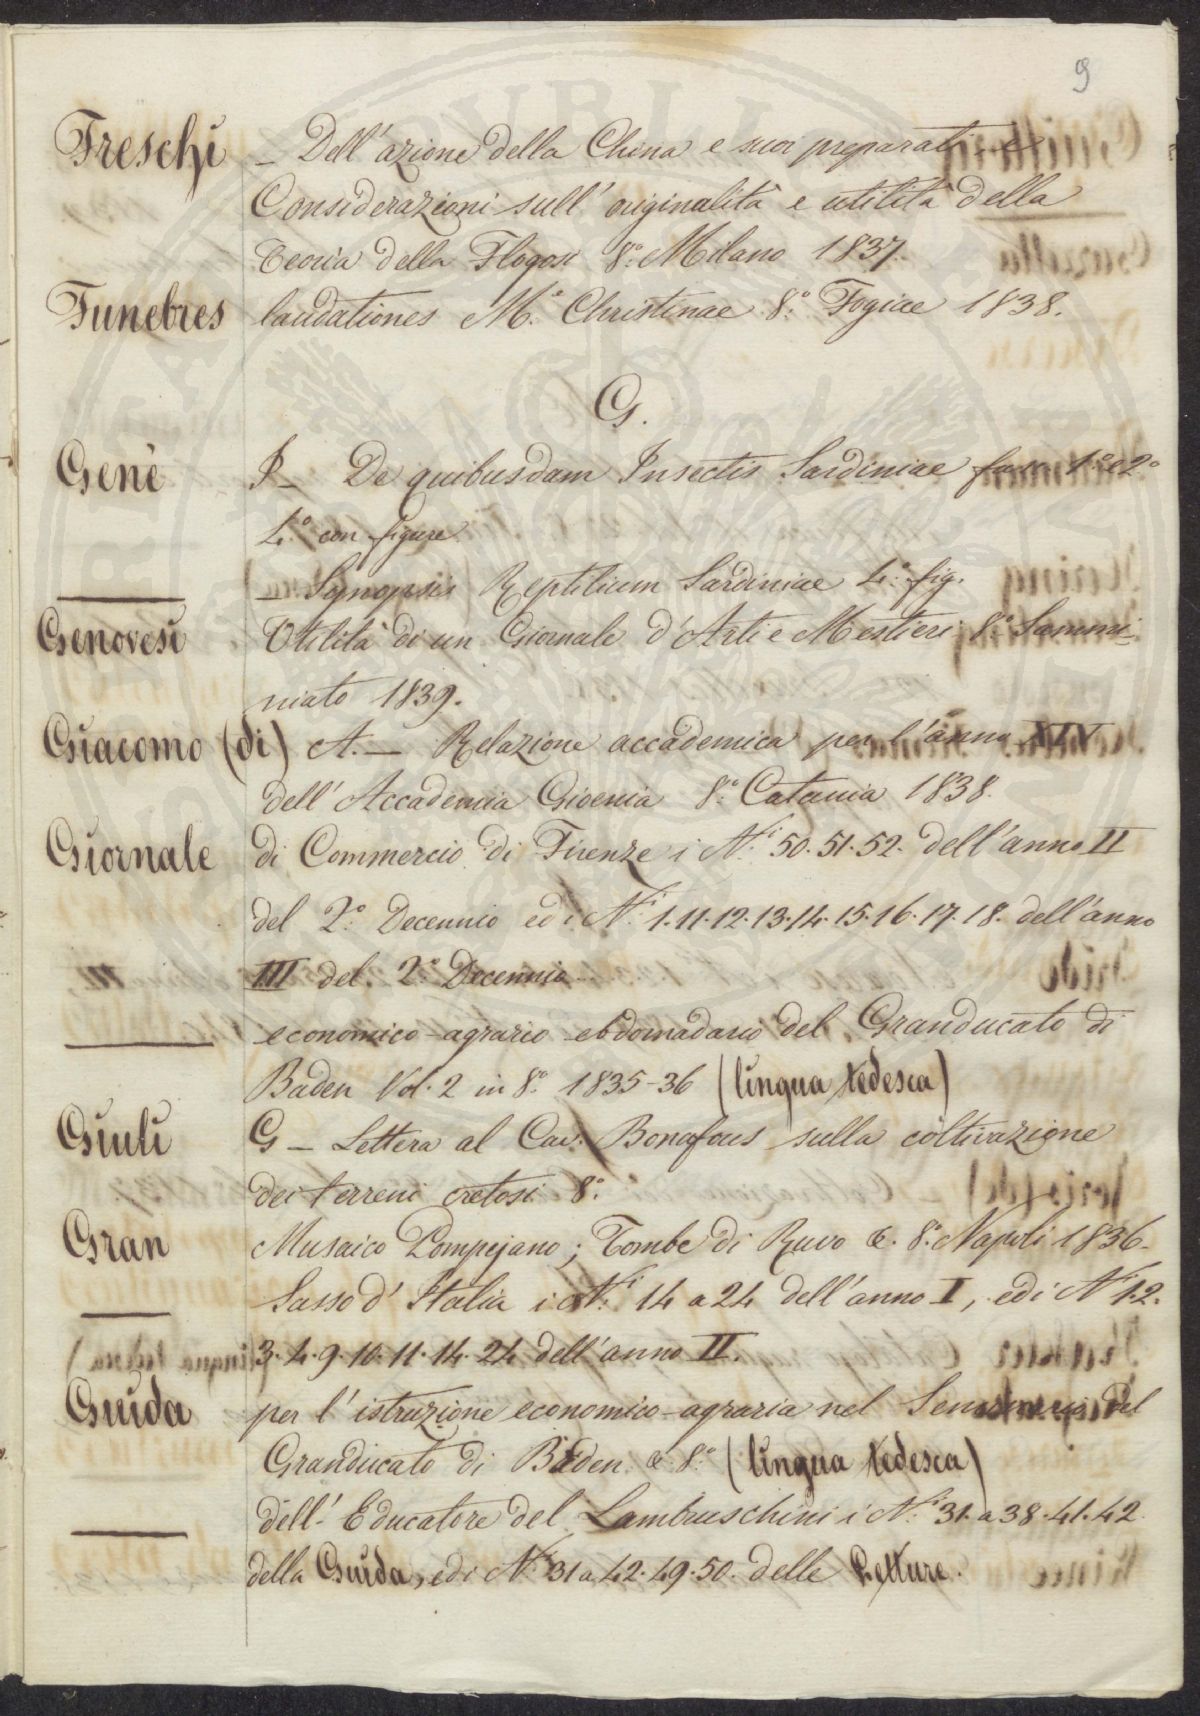 9
Freschi – Dell'azione della China e suoi preparati e
Considerazioni sull'originalità e utilità della
Teoria della Flogosi 8.° Milano 1837.
Funebres laudationes M.° Christinae 8.° Fogiae 1838.
G.
Genè I – De quibusdam Insectis Sardiniae fasc. 1.° e 2.°
4.° con figure
– Synopsis Reptilium Sardiniae 4.° fig.
Genovesi Utilità di un Giornale d'Arti e Mestieri 8.° Sammi-
niato 1839.
Giacomo (di) A. – Relazione accademica per l'anno XIV
dell'Accademia Gioenia 8.° Catania 1838.
Giornale di Commercio di Firenze i N.i 50. 51. 52. dell'anno II
del 2.° Decennio ed i N.i 1. 11. 12. 13. 14. 15. 16. 17. 18. dell'anno
III del 2.° Decennio
economico-agrario ebdomadario del Granducato di
Baden Vol. 2 in 8.° 1835-36 (lingua tedesca)
Giuli G – Lettera al Cav: Bonafous sulla coltivazione
dei terreni cretosi 8.°
Gran Musaico Pompejano; Tombe di Ruvo &. 8.° Napoli 1836.
Sasso d'Italia i N.i 14 a 24 dell'anno I, ed i N.i 1. 2.
3. 4. 9. 10. 11. 14. 24 dell'anno II.
Guida per l'istruzione economico-agraria nel Seminario del
Granducato di Baden & 8.° (lingua tedesca)
dell'Educatore del Lambruschini i N.i 31. a 38. 41. 42
della Guida, ed i N.i 31 a 42. 49. 50. delle Letture.